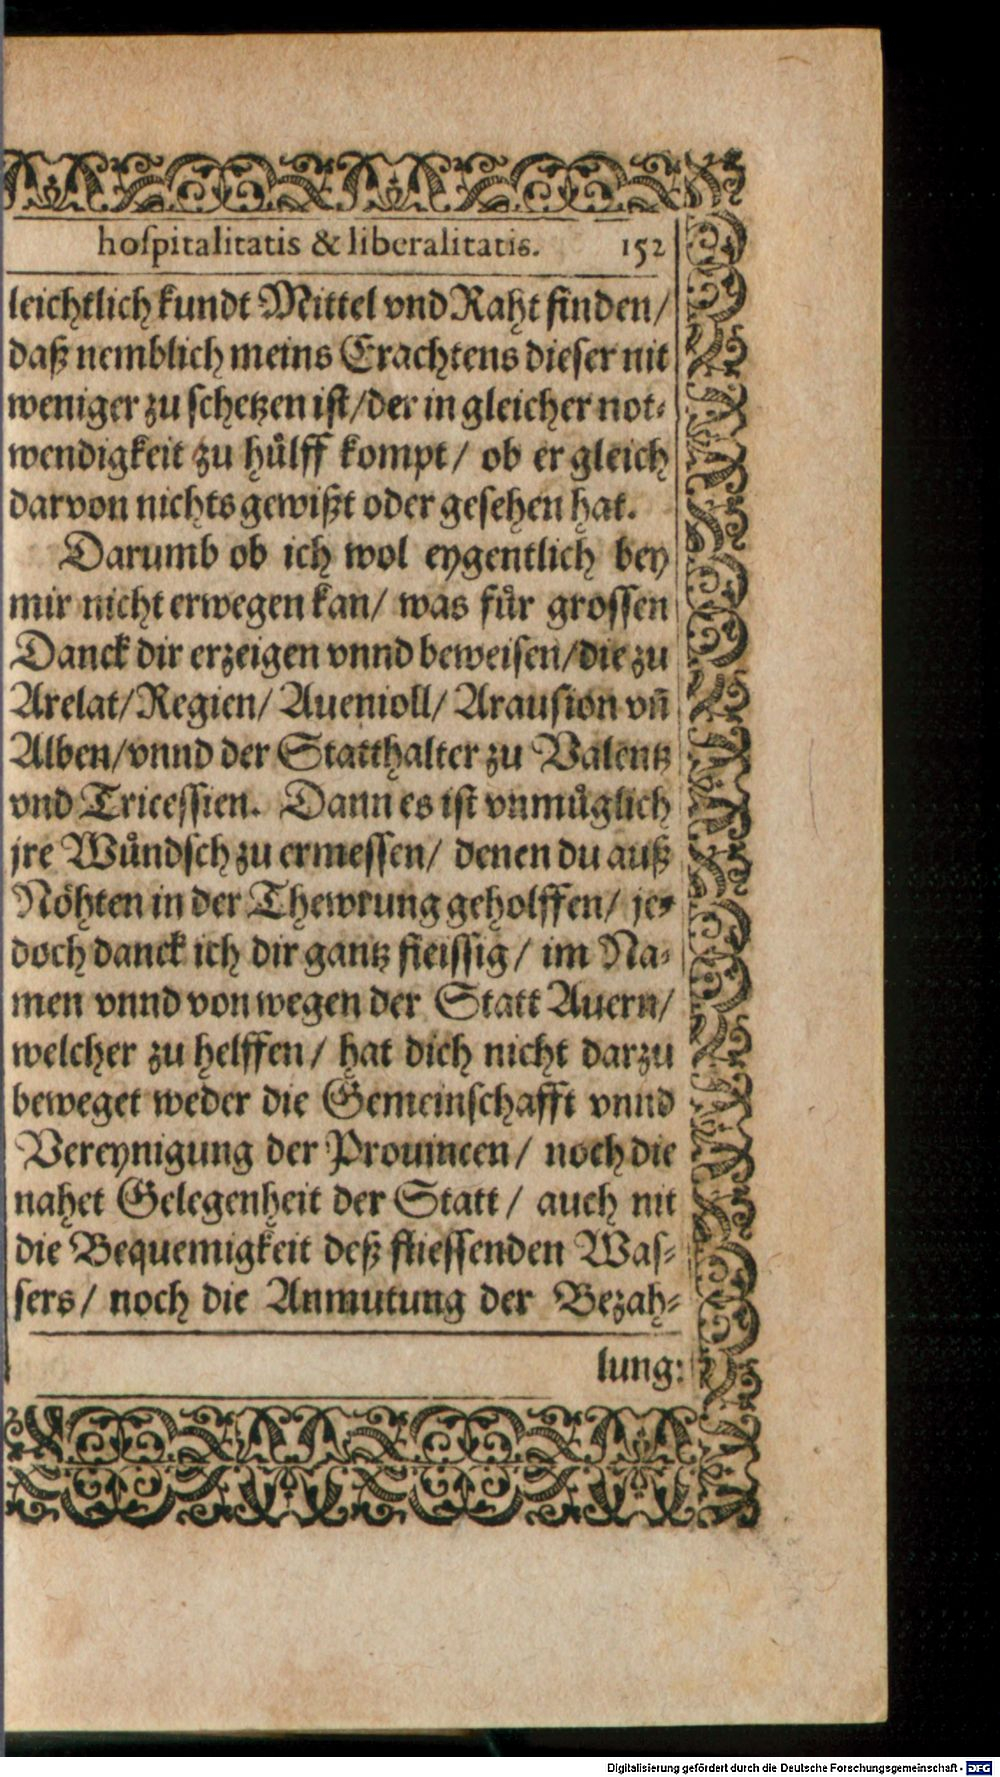 hospitalitatis & liberalitatis. 152
leichtlich kundt Mittel vnd Raht finden/
daß nemblich meins Erachtens dieser nit
weniger zu schetzen ist/der in gleicher not-
wendigkeit zu huͤlff kompt/ ob er gleich
darvon nichts gewißt oder gesehen hat.
Darumb ob ich wol eygentlich bey
mir nicht erwegen kan/ was fuͤr grossen
Danck dir erzeigen vnnd beweisen/die zu
Arelat/Regien/ Auenioll/ Arausion vñ
Alben/vnnd der Statthalter zu Valentz
vnd Tricessien. Dann es ist vnmuͤglich
jre Wuͤndsch zu ermessen/ denen du auß
Nöhten in der Thewrung geholffen/ je-
doch danck ich dir gantz fleissig/ im Na-
men vnnd von wegen der Statt Auern/
welcher zu helffen/ hat dich nicht darzu
beweget weder die Gemeinschafft vnnd
Vereynigung der Prouincen/ noch die
nahet Gelegenheit der Statt/ auch nit
die Bequemigkeit deß fliessenden Was-
sers/ noch die Anmutung der Bezah-
lung:
Digitalisierung gefördert durch die Deutsche Forschungsgemeinschaft - DFG